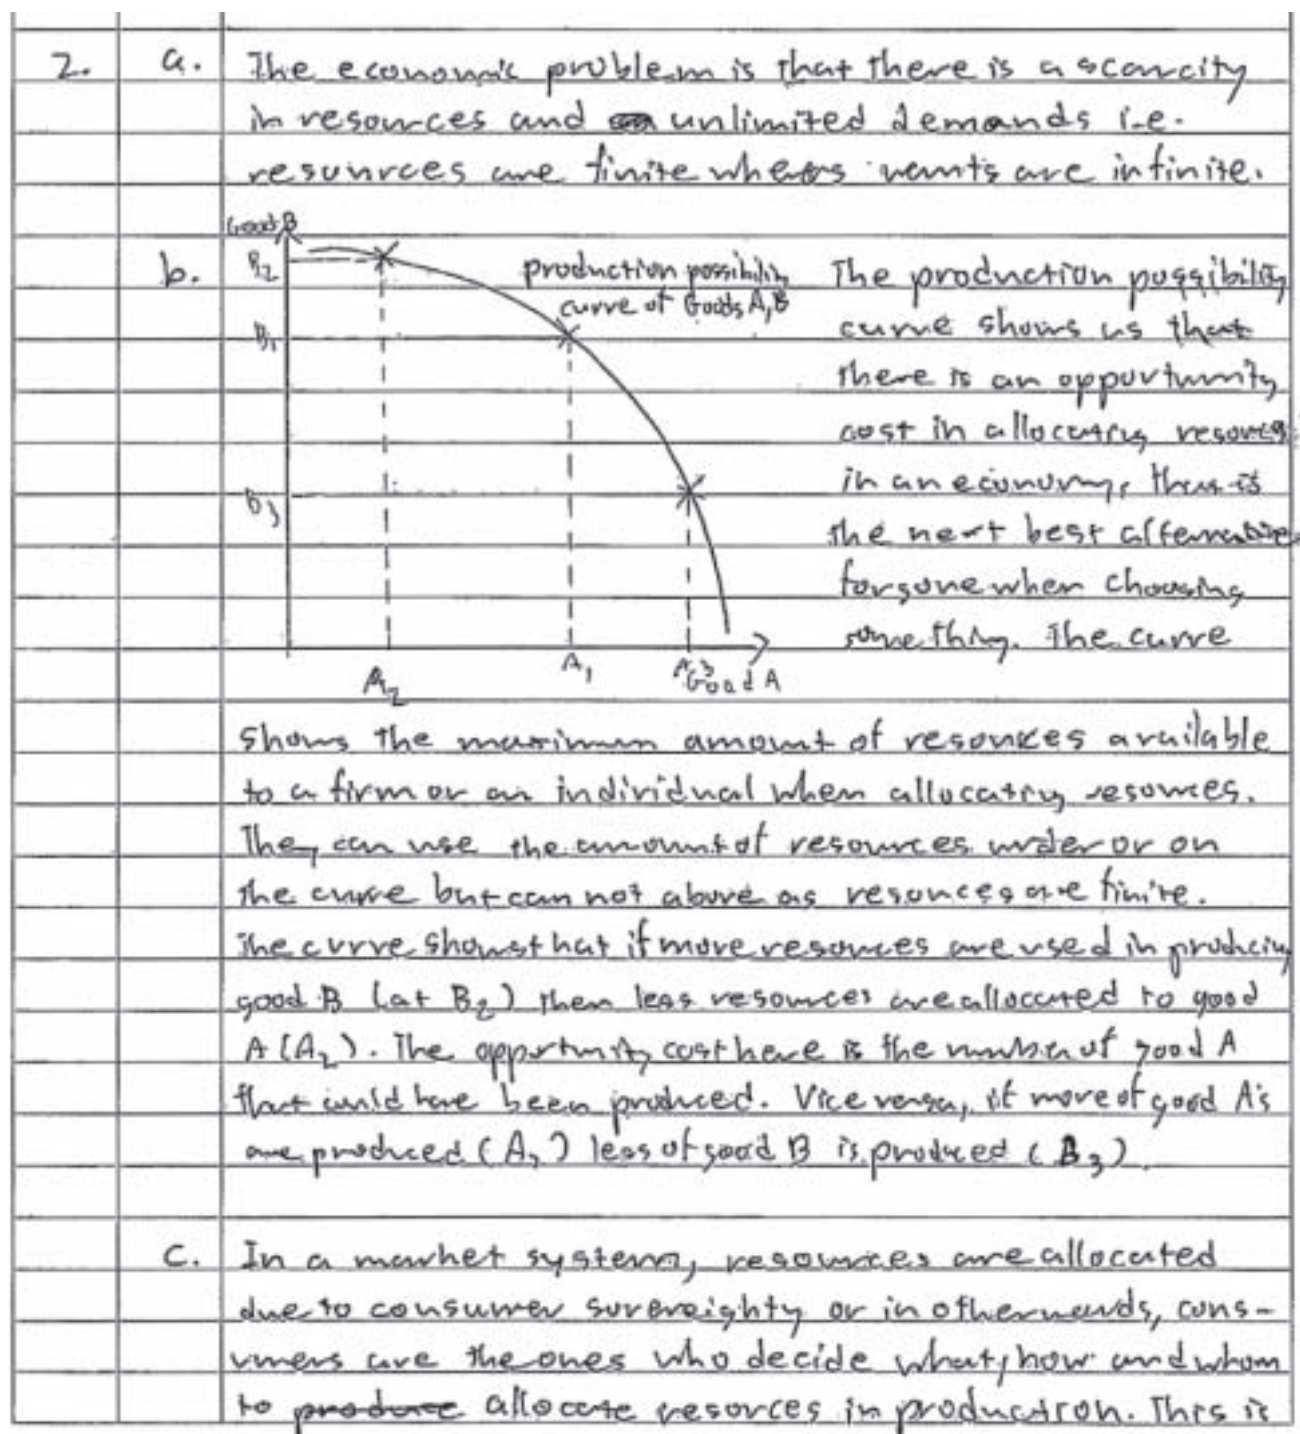 2. a. The economic problem is that there is a scarcity
in resources and unlimited demands i.e.
resources are finite wheras wants are infinite.
Good B
b. B2 production possibility The production possibility
curve of Goods A, B
B1 curve shows us that
there is an opportunity
cost in allocating resources
B3 in an economy, that is
the next best alternative
forgone when choosing
something. The curve
A2 A1 A3 Good A
shows the maximum amount of resources available
to a firm or an individual when allocating resources.
They can use the amount of resources under or on
the curve but can not above as resources are finite.
The curve shows that if more resources are used in producing
good B (at B2) then less resources are allocated to good
A (A2). The opportunity cost here is the number of good A
that could have been produced. Vice versa, if more of good A's
are produced (A3) less of good B is produced (B3).
c. In a market system, resources are allocated
due to consumer sovereighty or in other words, cons-
umers are the ones who decide what, how and whom
to produce allocate resorces in production. This is